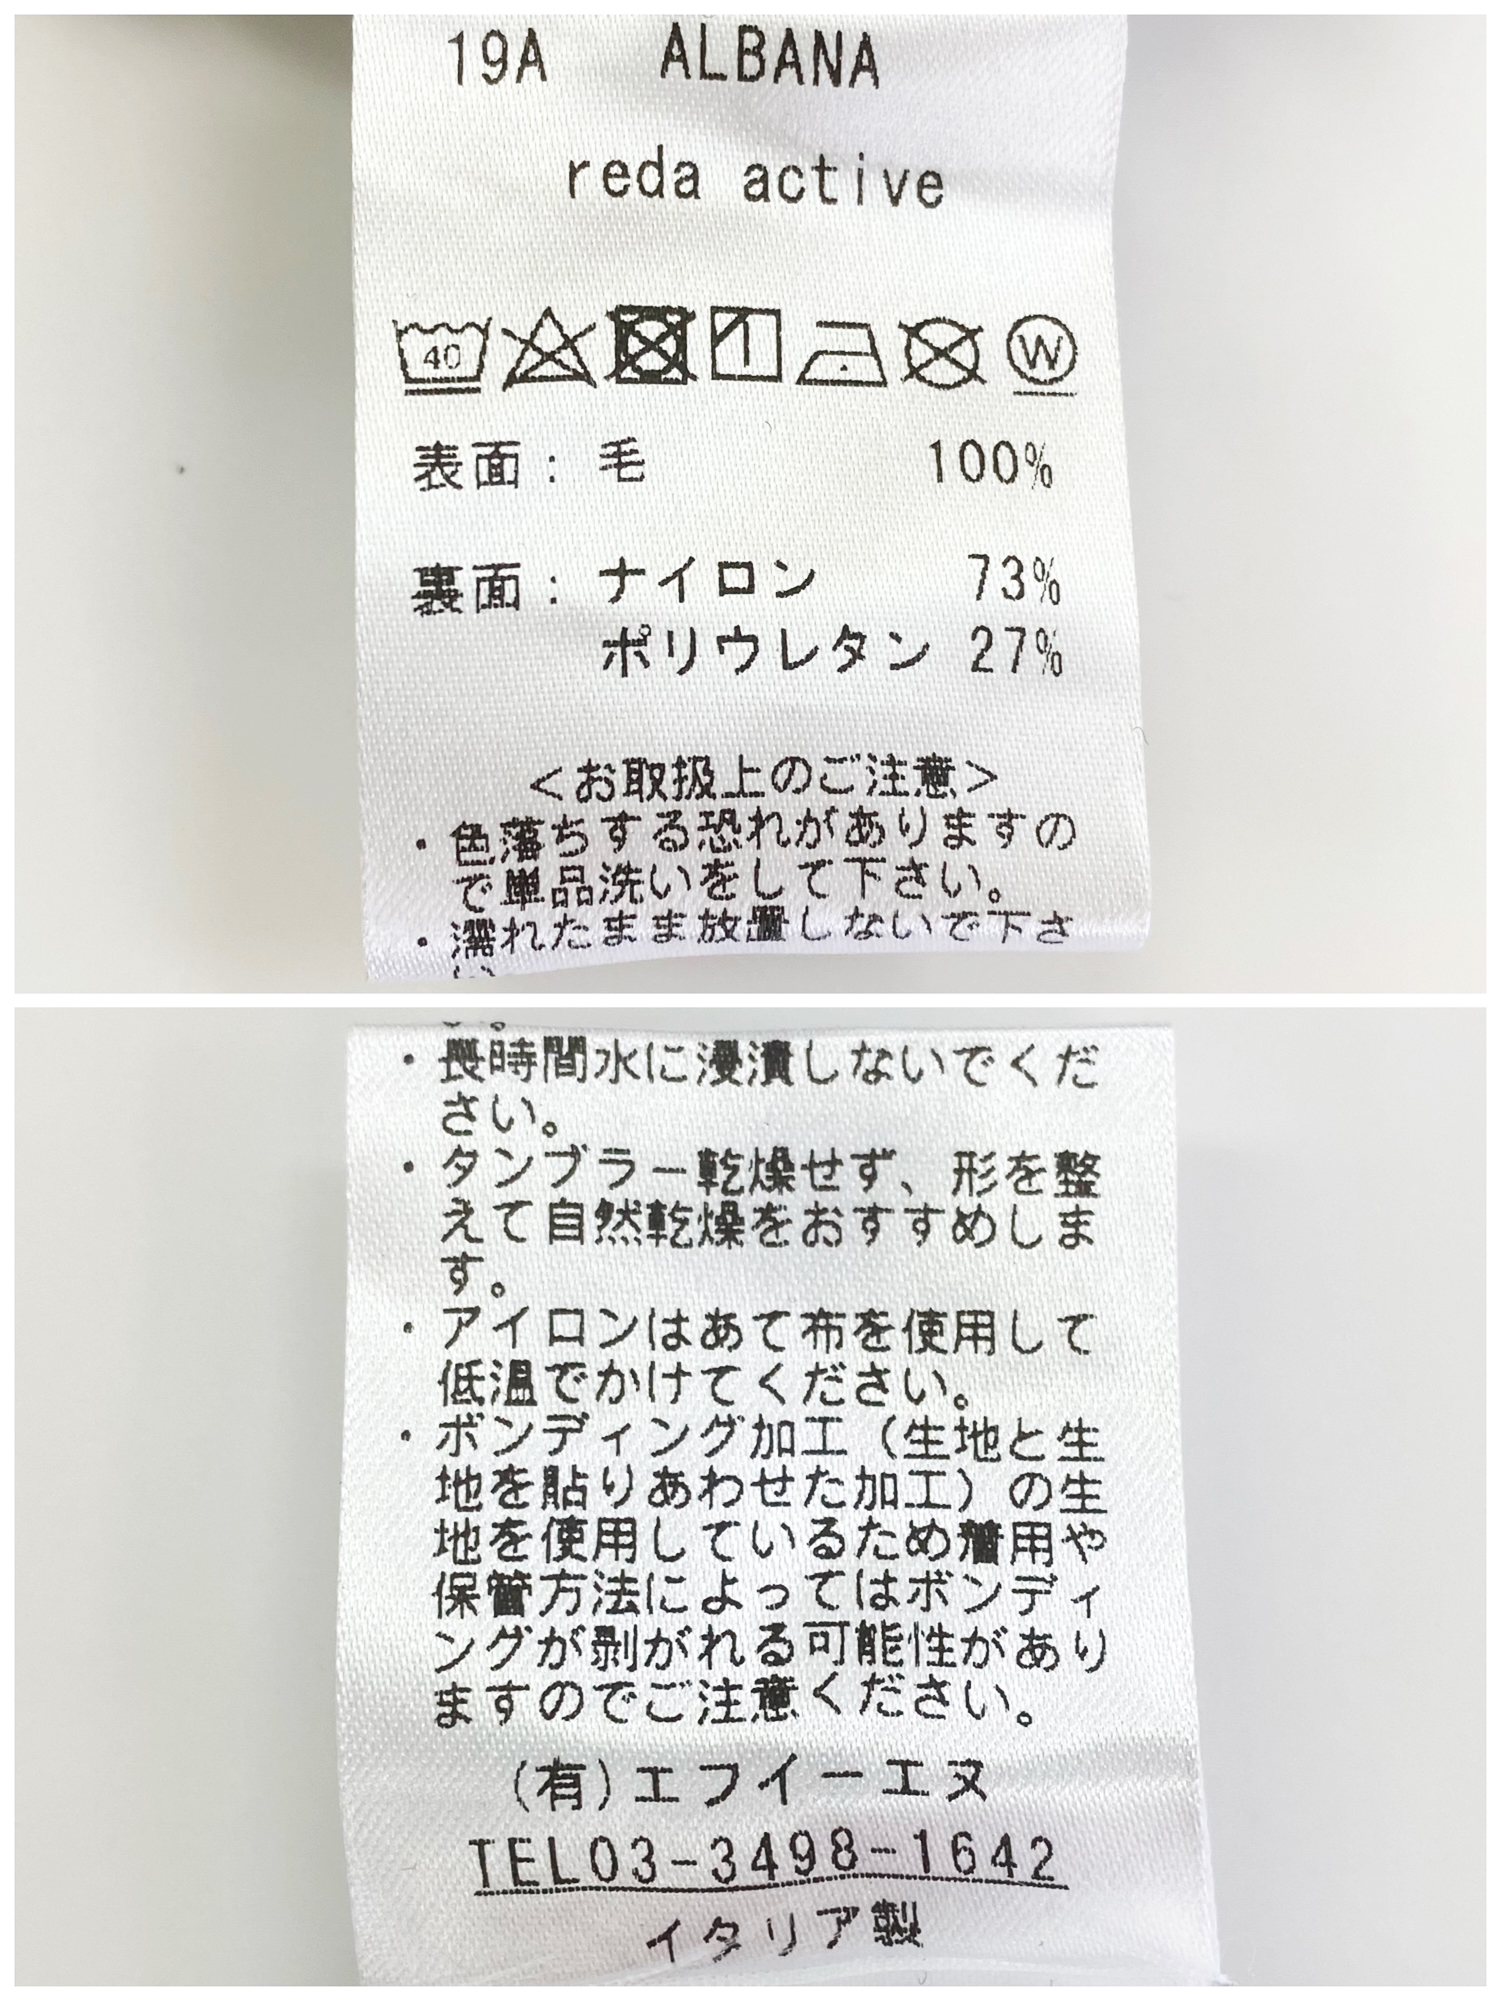 19A ALBANA
reda active
40
W
表面: 毛 100%
裏面: ナイロン 73%
ポリウレタン 27%
<お取扱上のご注意>
・色落ちする恐れがありますの
で単品洗いをして下さい。
・濡れたまま放置しないで下さ
い。
・長時間水に浸漬しないでくだ
さい。
・タンブラー乾燥せず、形を整
えて自然乾燥をおすすめしま
す。
・アイロンはあて布を使用して
低温でかけてください。
・ボンディング加工(生地と生
地を貼りあわせた加工)の生
地を使用しているため着用や
保管方法によってはボンディ
ングが剥がれる可能性があり
ますのでご注意ください。
(有)エフイーエヌ
TEL03-3498-1642
イタリア製